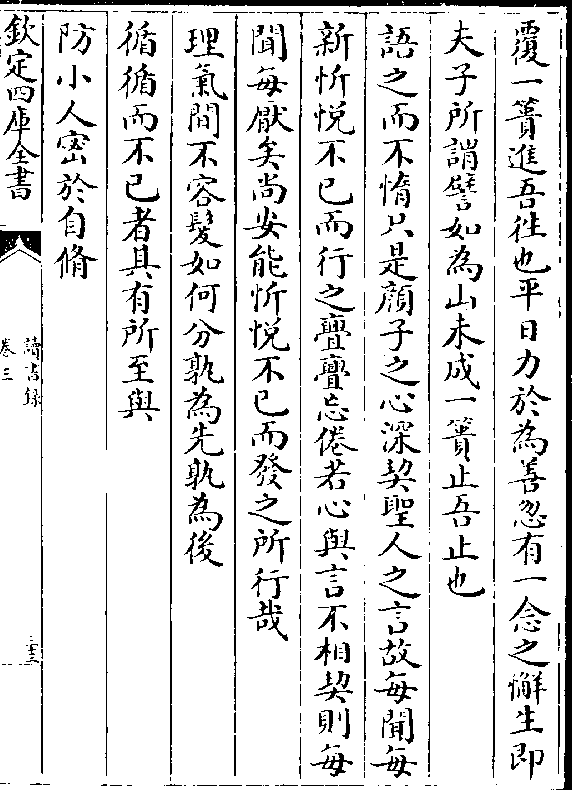 覆一簣進吾徃也平日力於為善忽有一念之懈生即
夫子所謂譬如為山未成一簣止吾止也
語之而不惰只是顔子之心深契聖人之言故每聞每
新忻悦不已而行之亹亹忘倦若心與言不相契則每
聞每厭矣尚安能忻悦不已而發之所行哉
理氣間不容髮如何分孰為先孰為後
循循而不已者其有所至與
防小人宻於自脩
欽定四庫全書
讀書録
卷三
三十三